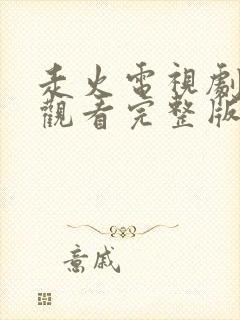 火電視劇
觀看完整版
意戚